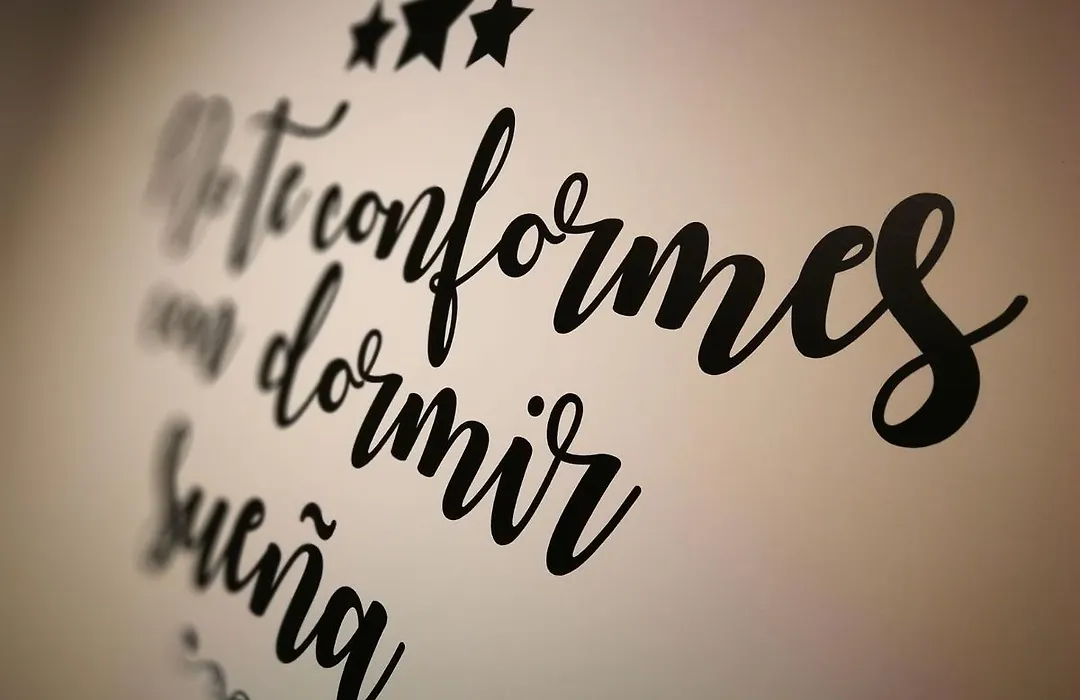 No te conformes
con dormir
Sueña